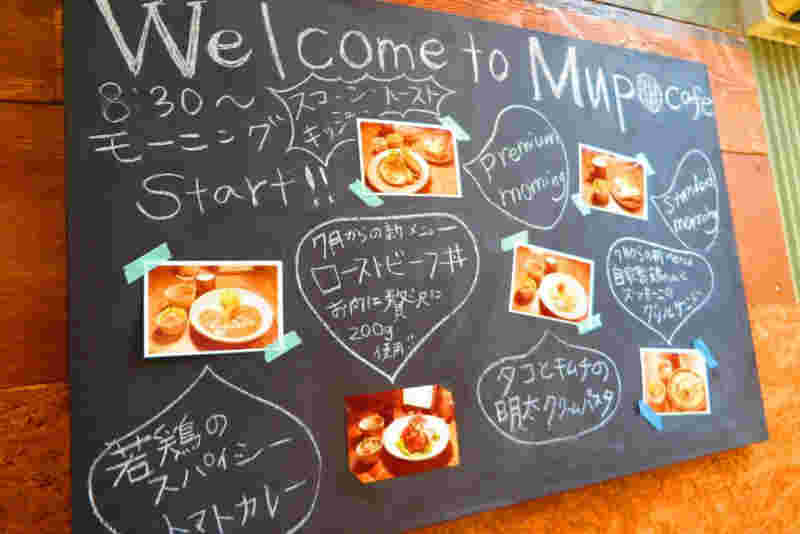 Welcome to Mup cafe
8:30～
モーニング
Start!!
スコーン トースト
キッシュ
Premium
morning
Standard
morning
7月からの新メニュー
ローストビーフ丼
お肉は贅沢に
200g
使用!!
7月からの新menu
自家製鶏ハムと
ズッキーニの
タコとキムチの
明太クリームパスタ
若鶏の
スパイシー
トマトカレー